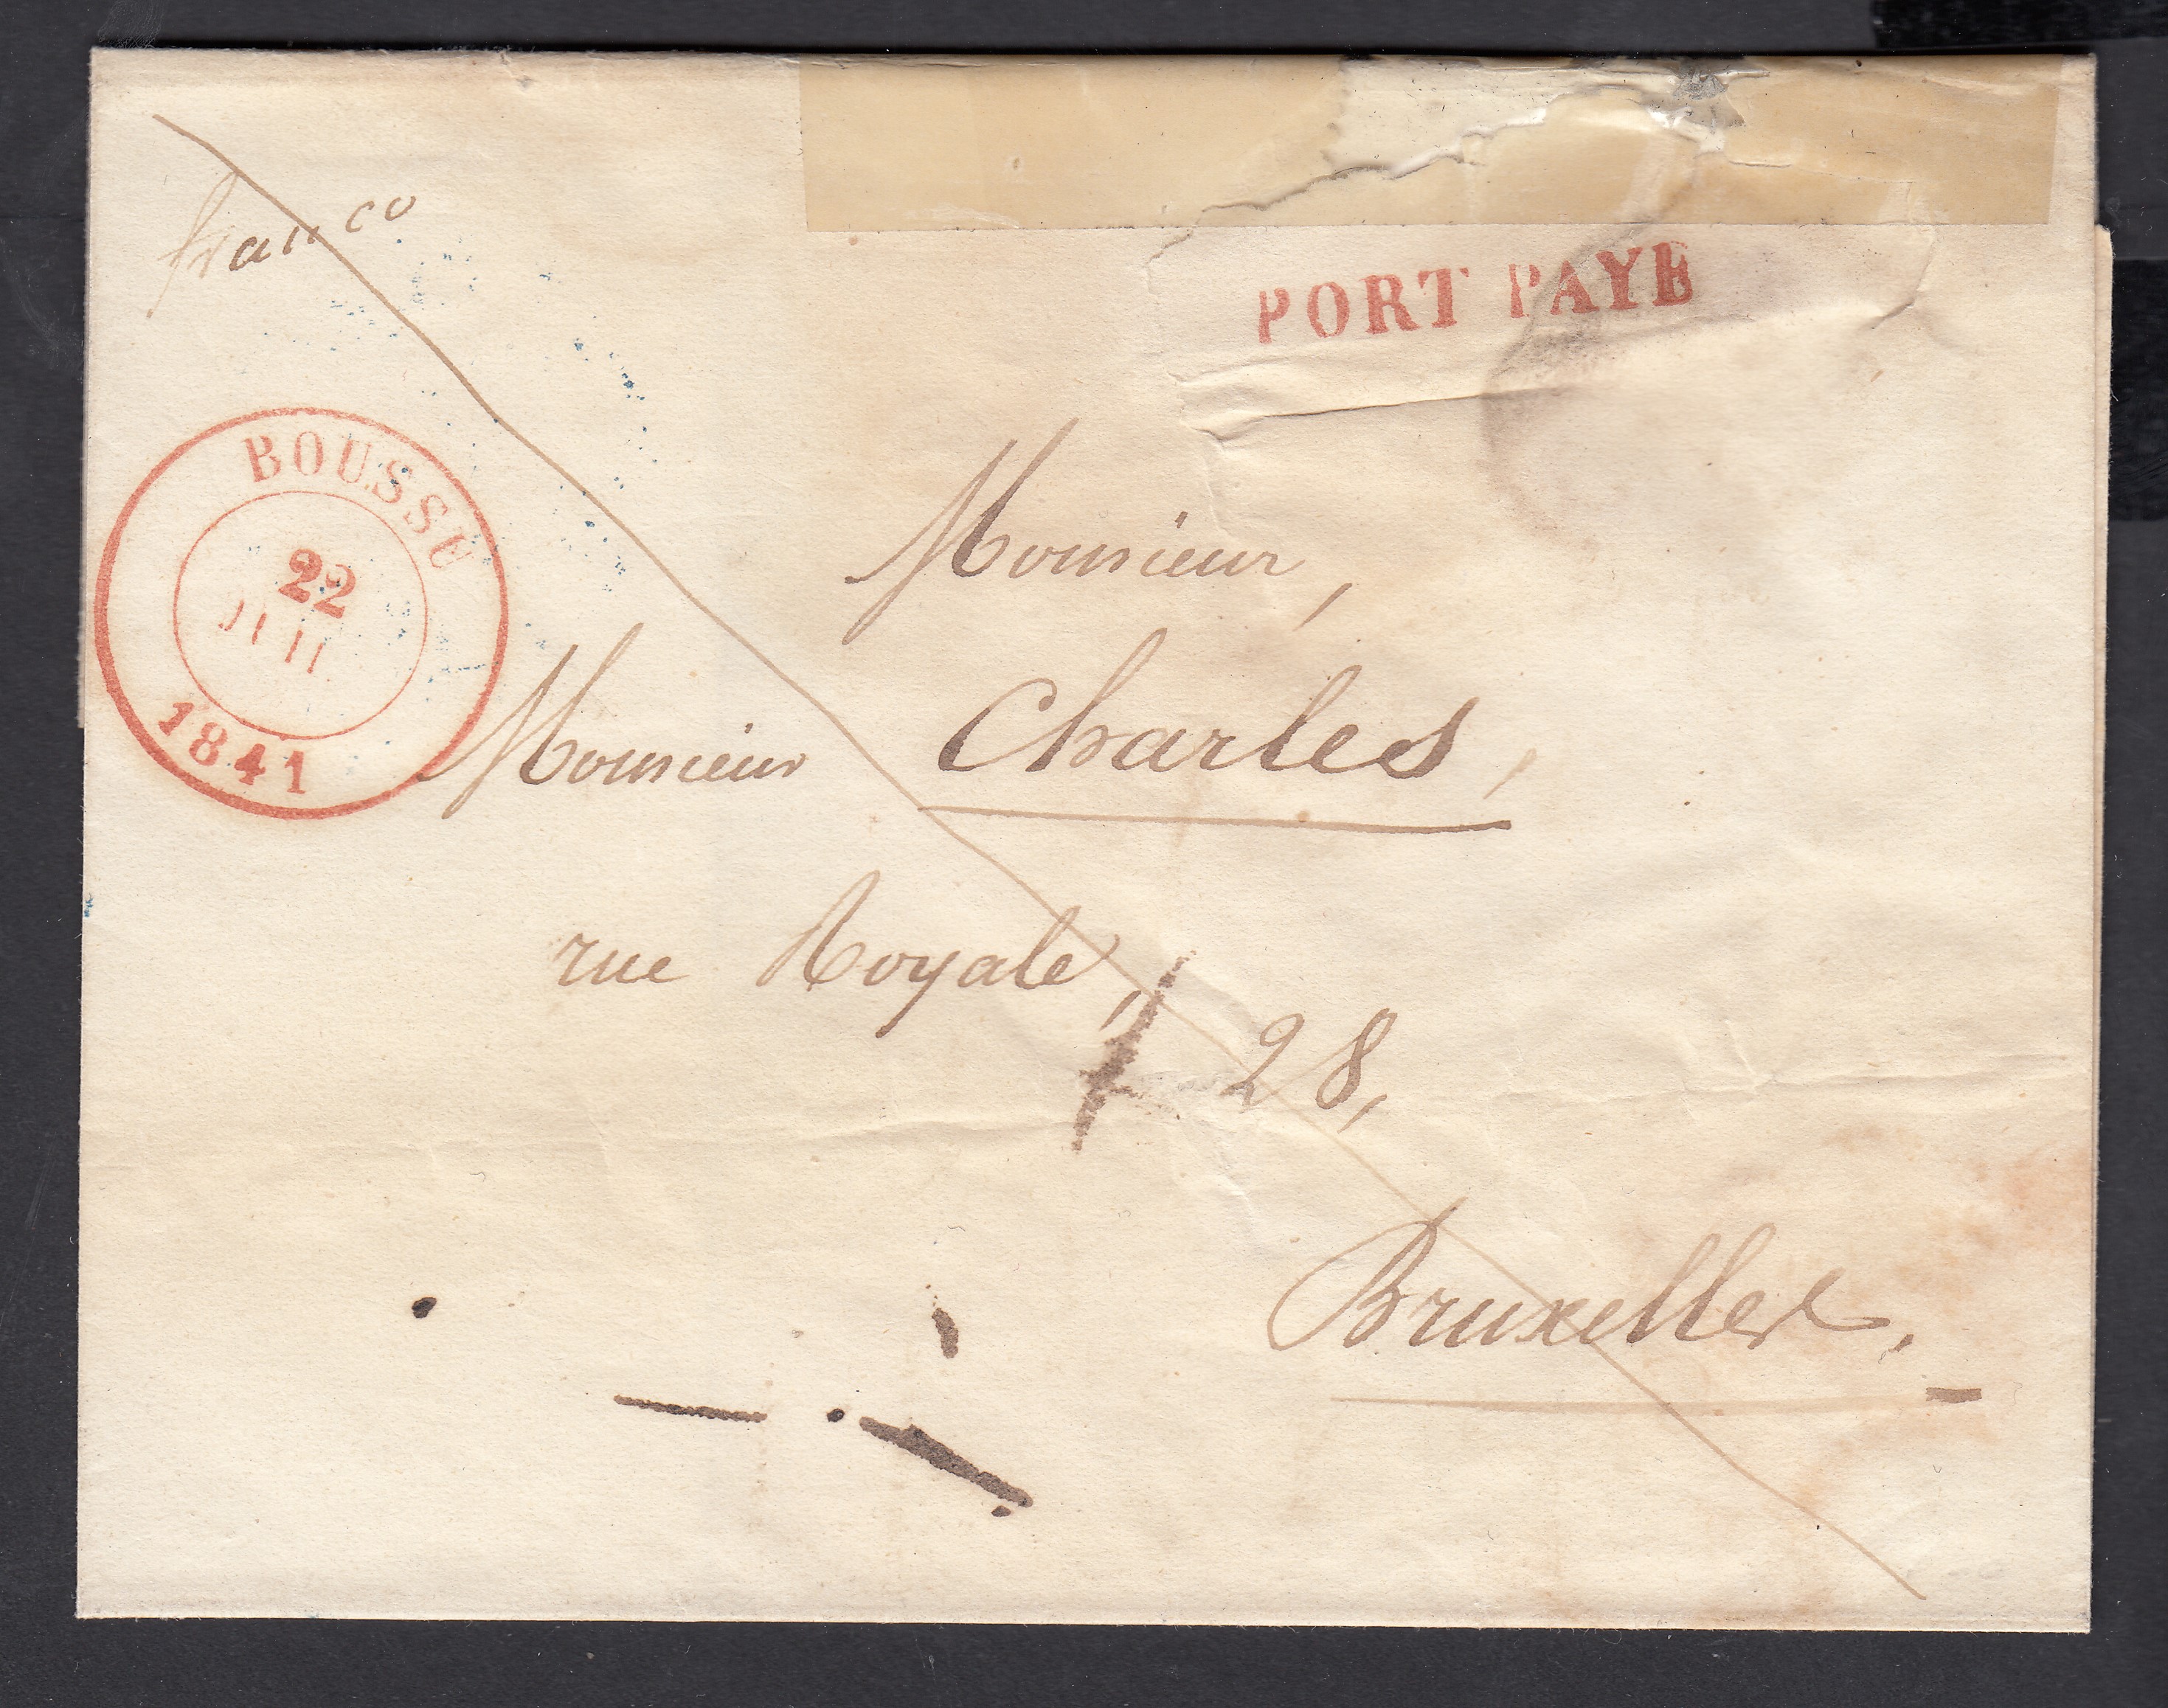 franco
PORT PAYE
BOUSSU
22
JUIL
1841
Monsieur,
Monsieur Charles,
rue Royale,
28,
Bruxelles.